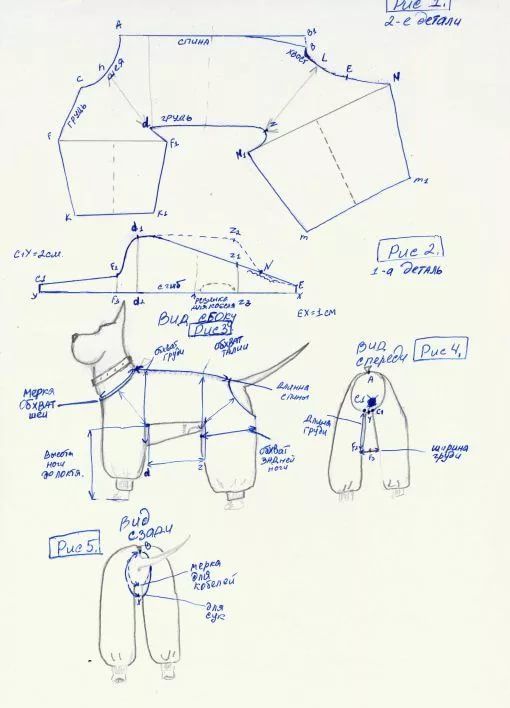 Рис 1.
2-е детали
A
B1
спина
B
хвост
L
E
N
h
шея
C
грудь
d
грудь
z
F
F1
N1
M1
K
K1
M
d1
Z2
C1Y=2см.
F2
Z1
N
Рис 2.
1-а деталь
C1
E
сгиб
У
F3
d2
резинка
для кобеля
Z3
X
EX=1см
Вид сбоку
Рис3
обхват
груди
обхват
талии
Вид
спереди
Рис 4.
A
мерка
обхват
шеи
длинна
спины
C1
C1
Y
Длина
груди
Высота
ноги
до локтя.
обхват
задней
ноги
F2
F3
ширина
груди
d
z
Вид
сзади
Рис 5.
B
мерка
для
кобелей
X
для
сук